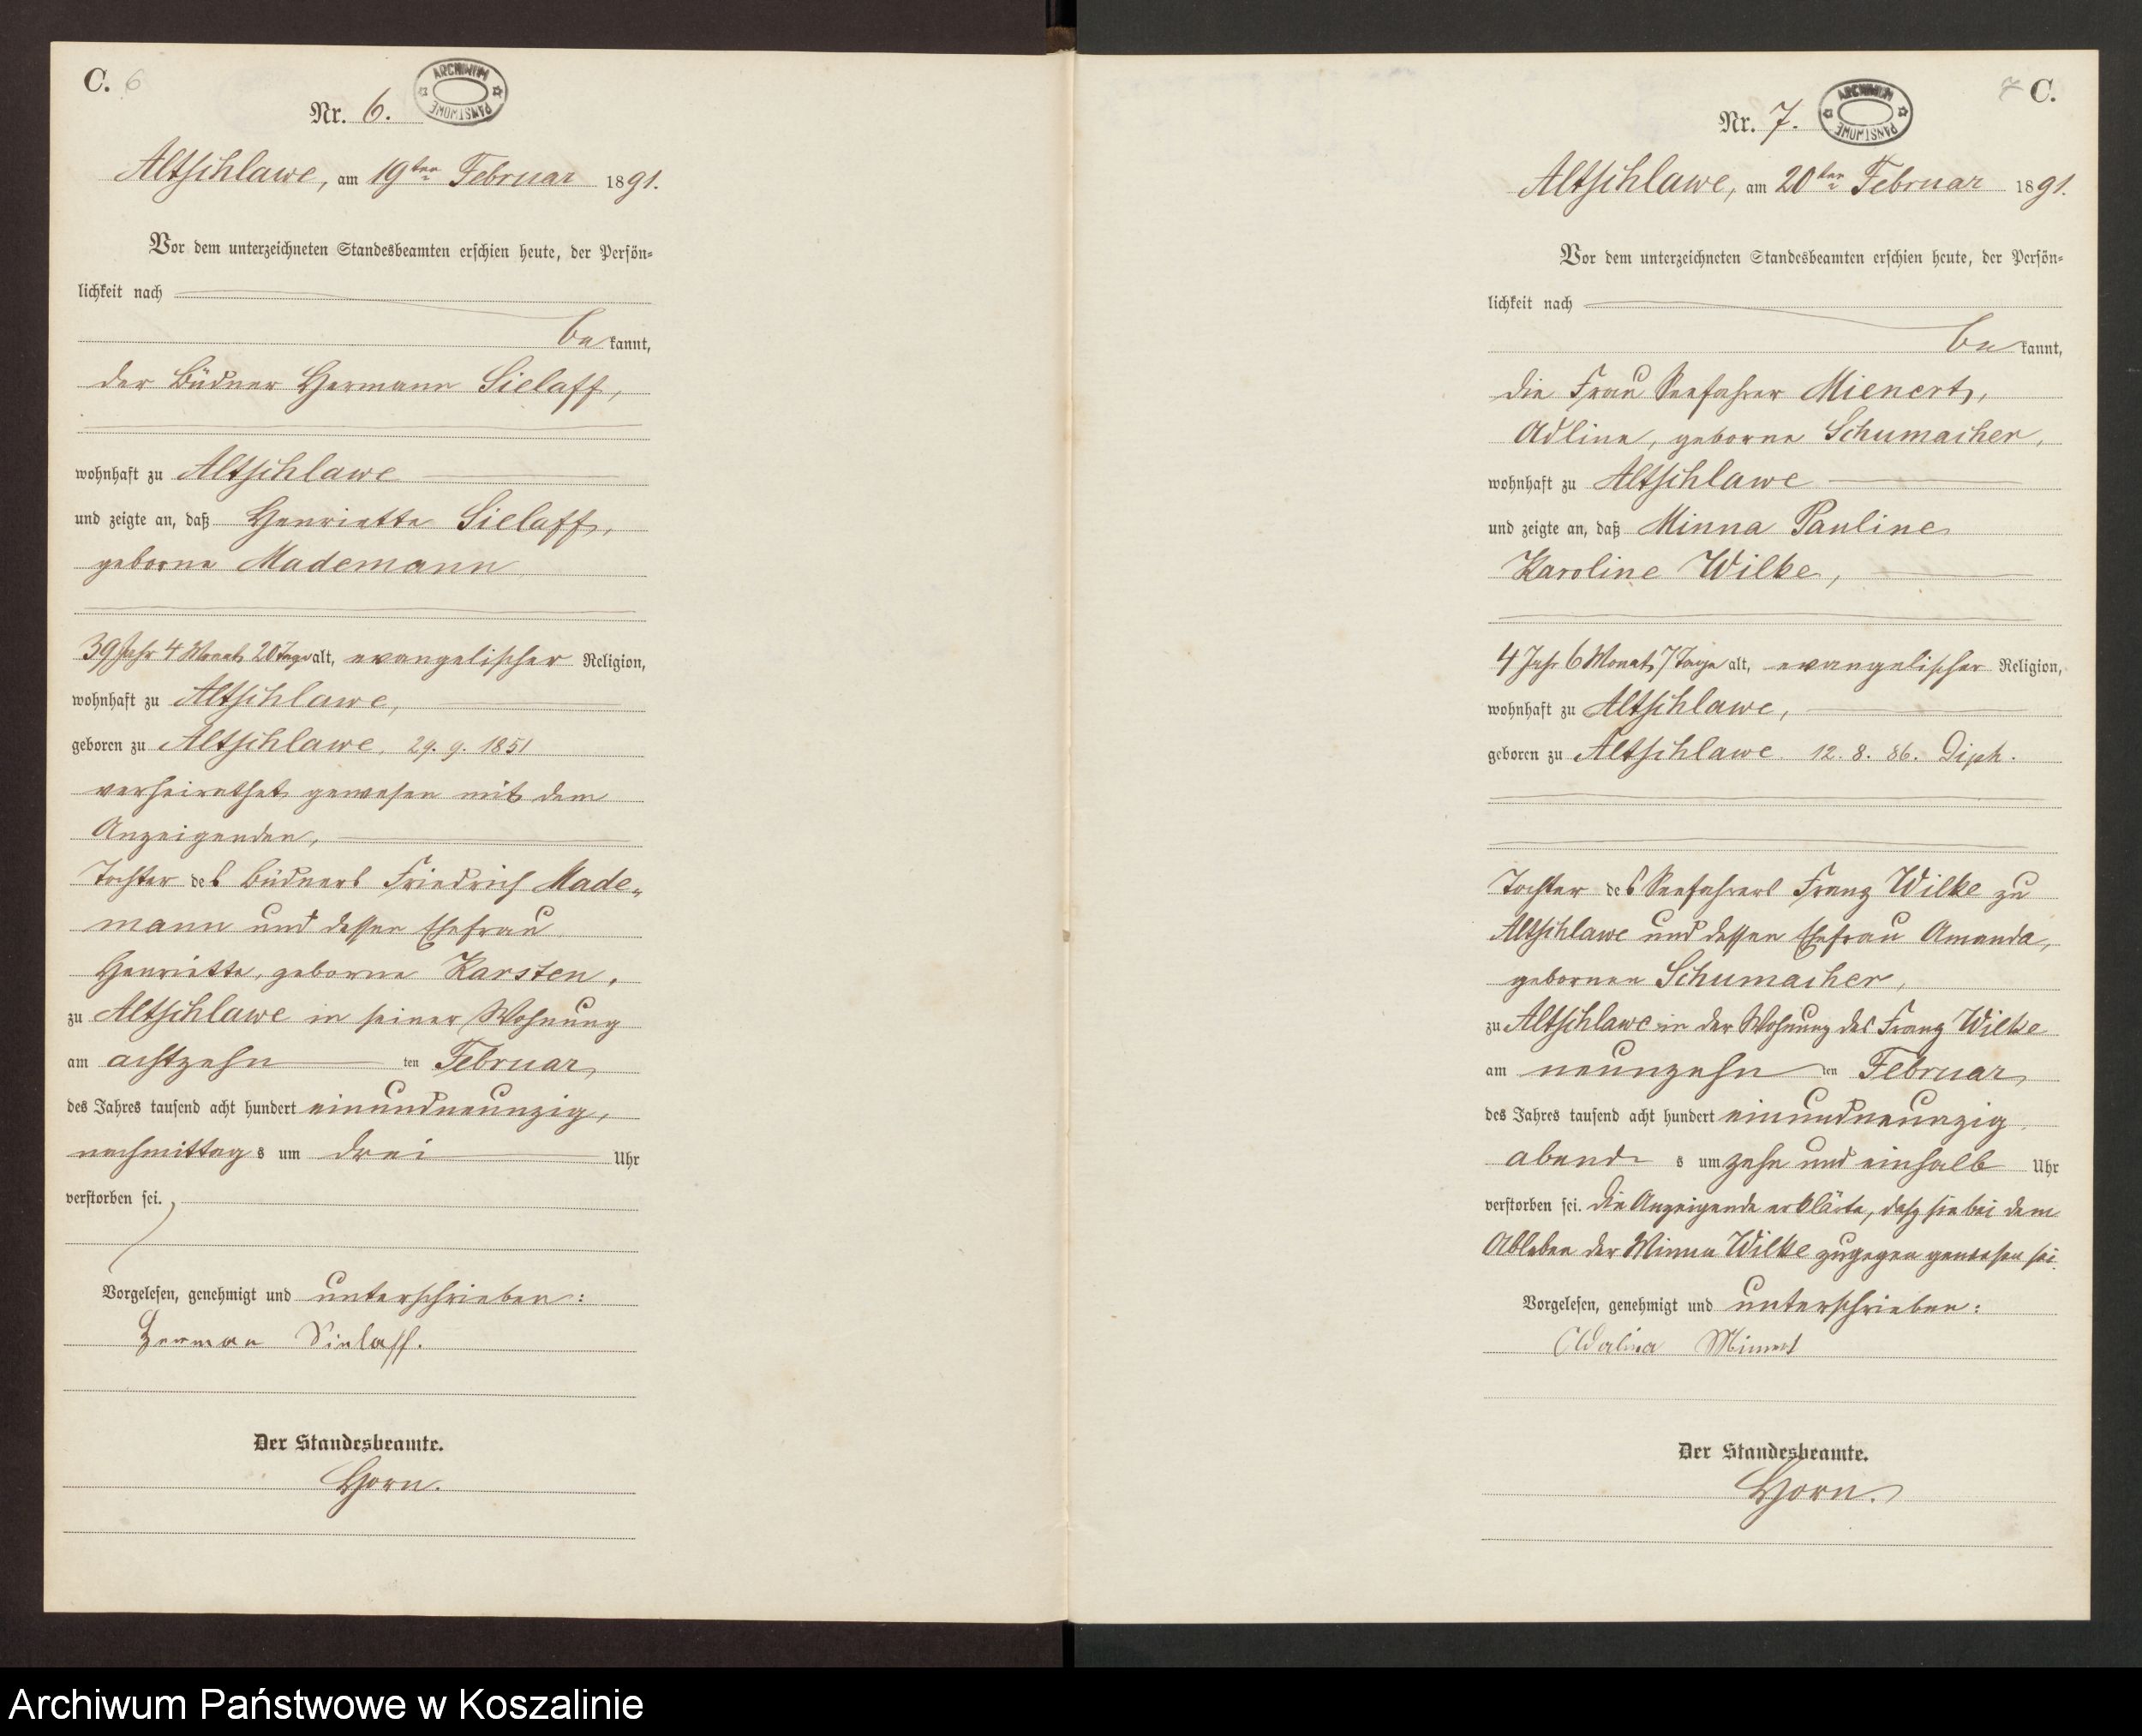 C. 6
ARCHIWUM PAŃSTWOWE
Nr. 6.
Altschlawe, am 19ten Februar 1891.
Vor dem unterzeichneten Standesbeamten erschien heute, der Persön-
lichkeit nach
bekannt,
der Büdner Hermann Sielaff,
wohnhaft zu Altschlawe
und zeigte an, daß Henriette Sielaff,
geborne Mademann
39 Jahr 4 Monat 20 Tage alt, evangelischer Religion,
wohnhaft zu Altschlawe,
geboren zu Altschlawe, 29. 9. 1851
verheirathet gewesen mit dem
Anzeigenden,
Tochter des Büdners Friedrich Made-
mann und dessen Ehefrau
Henriette, geborne Karsten,
zu Altschlawe in seiner Wohnung
am achtzehn ten Februar,
des Jahres tausend acht hundert einundneunzig,
nachmittags um drei Uhr
verstorben sei.
Vorgelesen, genehmigt und unterschrieben:
Herman Sielaff.
Der Standesbeamte.
Horn.
7 C.
ARCHIWUM PAŃSTWOWE
Nr. 7.
Altschlawe, am 20ten Februar 1891.
Vor dem unterzeichneten Standesbeamten erschien heute, der Persön-
lichkeit nach
bekannt,
die Frau Seefahrer Mienert,
Adline, geborne Schumacher,
wohnhaft zu Altschlawe
und zeigte an, daß Minna Pauline
Karoline Wilke,
4 Jahr 6 Monat 7 Tage alt, evangelischer Religion,
wohnhaft zu Altschlawe,
geboren zu Altschlawe 12. 8. 86. Diph.
Tochter des Seefahrers Franz Wilke zu
Altschlawe und dessen Ehefrau Amanda,
gebornen Schumacher,
zu Altschlawe in der Wohnung des Franz Wilke
am neunzehn ten Februar
des Jahres tausend acht hundert einundneunzig
abends um zehn und einhalb Uhr
verstorben sei. Die Anzeigende erklärte, daß sie bei dem
Ableben der Minna Wilke zugegen gewesen sei.
Vorgelesen, genehmigt und unterschrieben:
Adalina Minert
Der Standesbeamte.
Horn.
Archiwum Państwowe w Koszalinie